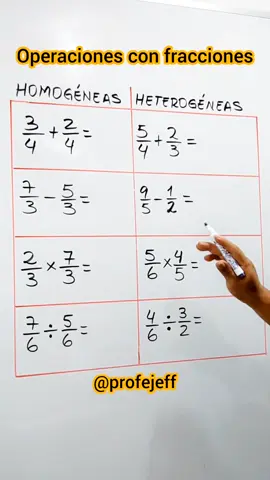 Operaciones con fracciones
HOMOGÉNEAS HETEROGÉNEAS
3/4 + 2/4 = 5/4 + 2/3 =
7/3 − 5/3 = 9/5 − 1/2 =
2/3 × 7/3 = 5/6 × 4/5 =
7/6 ÷ 5/6 = 4/6 ÷ 3/2 =
@profejeff